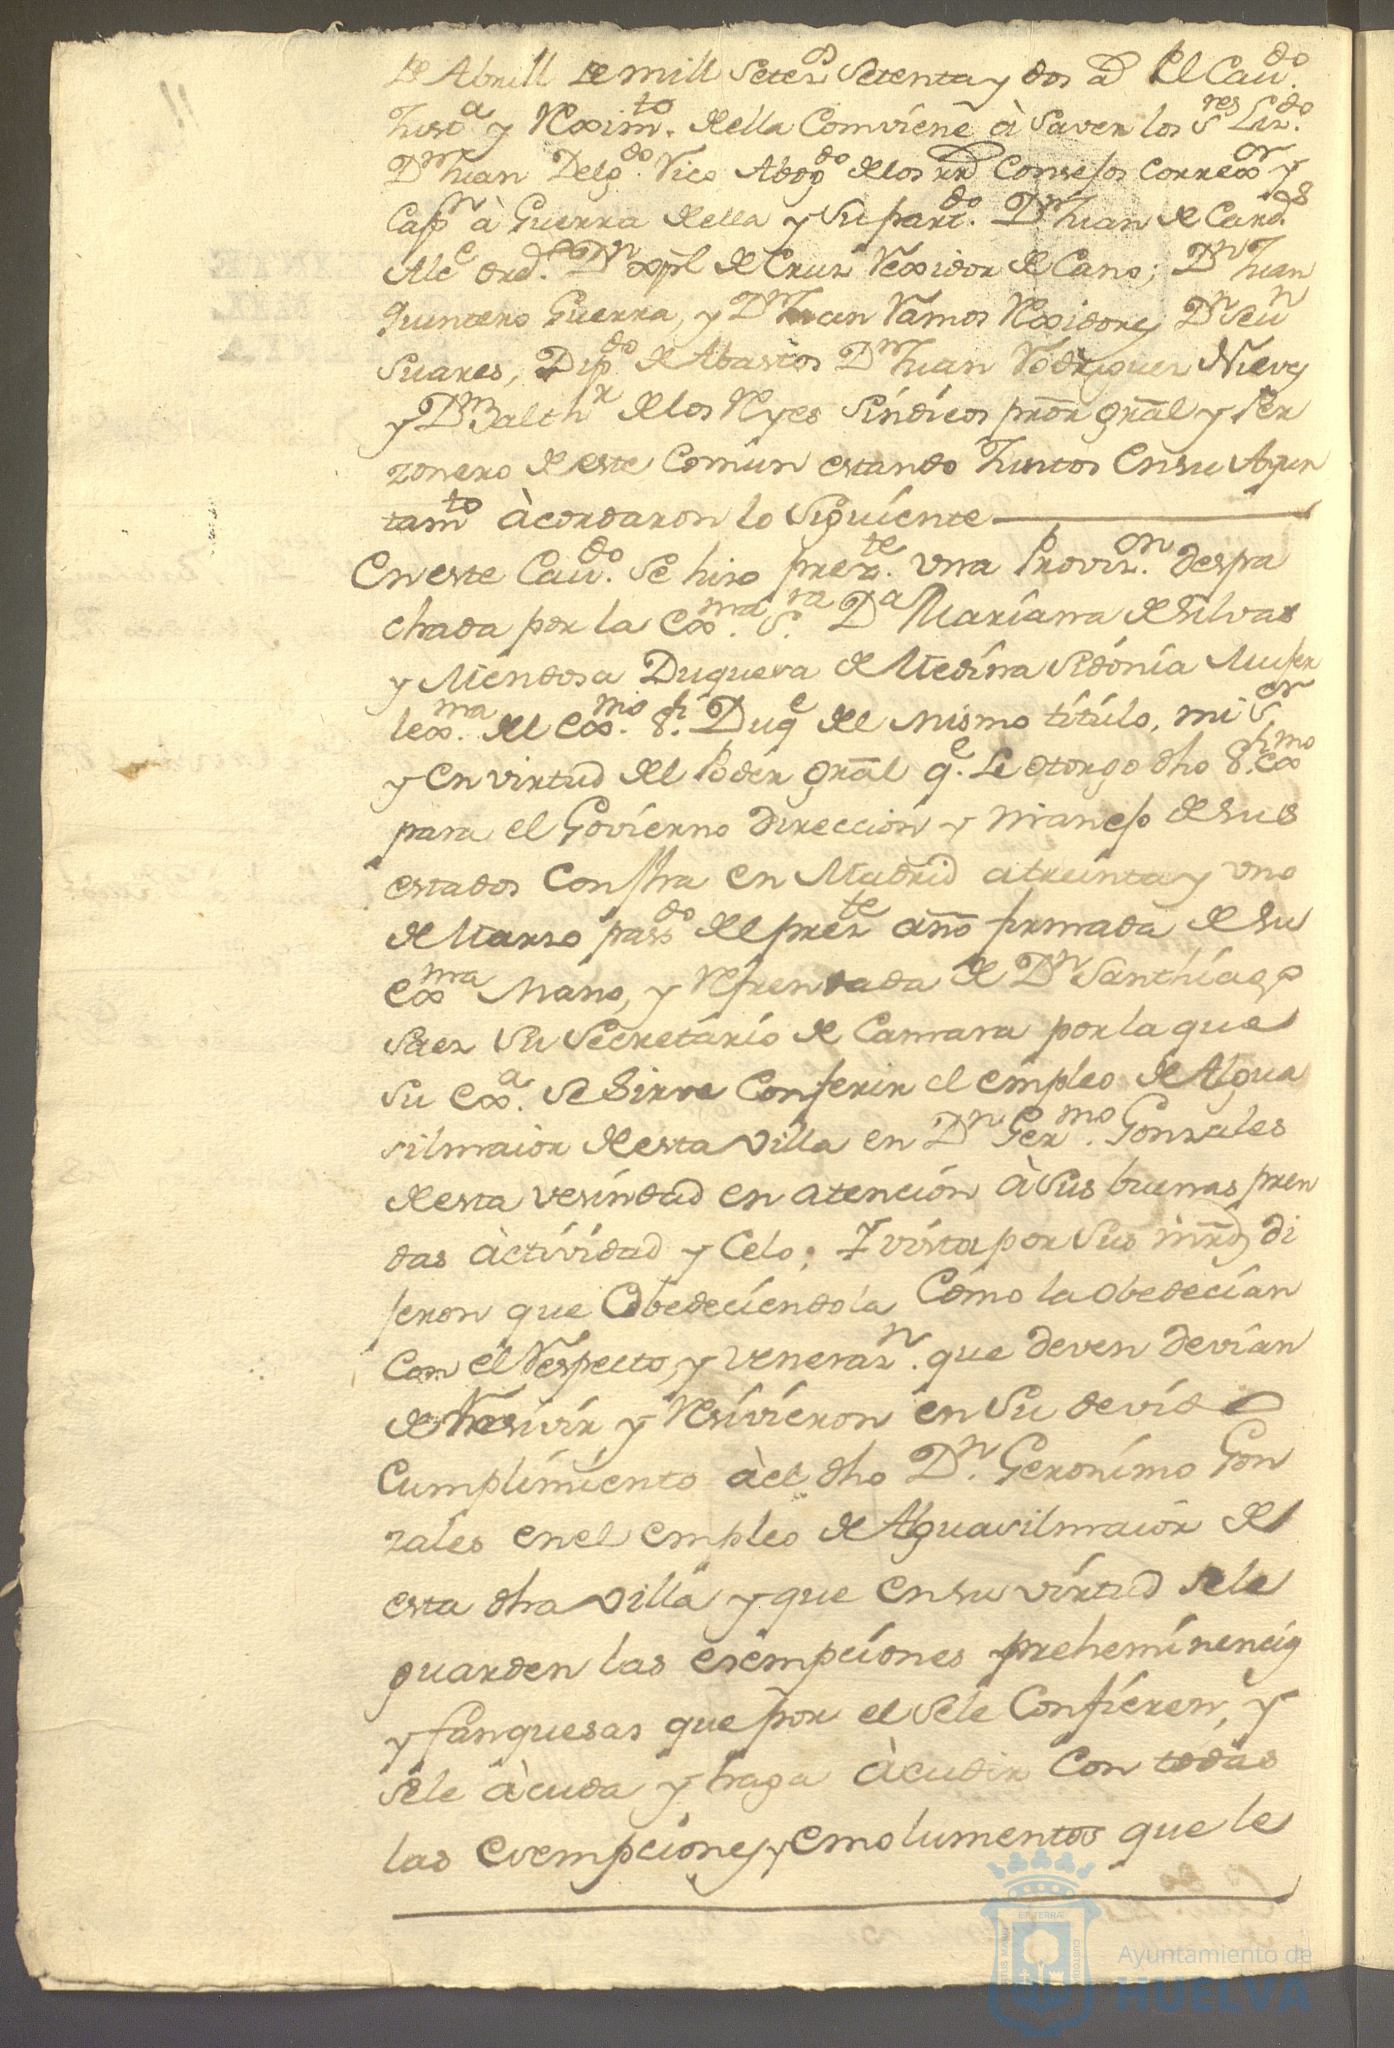 de Abrill de mill seteз.os setenta y dos a.s El Cav.do
Just.a y Reximto. della Comviene à Saver los S.res Liz.do
Dn Juan Delg.do Vico Abog.do de los rs Consejos Correx.or y
Capn à Guerra della y su part.do Dn Juan de Card.s
Alc.e ord.o Dn xpl de Cruz Rexidor de Cano; Dn Juan
Quintero Guerra, y Dn Juan Ramos Rexidores Dn Seun
Suares, Dip.do de Abastos Dn Juan Rodriguez Nieves
y Dn Balthr de los Reyes Síndicos pror gral y Per
zonero de este Comun estando Juntos en su Ayun
tamto àcordaron lo Siguiente
En este Cav.do se hiso prez.te una Proviz.on despa
chada por la Exx.ma S.ra Da Mariana de Silvas
y Mendosa Duquesa de Medina Sidonia Mujer
lex.ma del Exx.mo S.r Duq.e del mismo título, mi S.or
y en virtud del Poder gral q.e Le otorgo dho S.r Exmo
para el Govierno direccion y manejo de sus
estados Con fha en Madrid a treinta y uno
de Marzo pas.do del prez.te año firmada de su
Exx.ma Mano, y Refrendada de Dn Santhiago
Saez su Secretario de Camara por la que
su Exx.a se Sirve Conferir el empleo de Algua
silmaior de esta Villa en Dn Germo. Gonzales
de esta vesindad en atención à sus buenas pren
das àctividad y Celo; Y vista por Sus mrds di
jeron que Obedeciendola Como la obedecían
Con el Respecto, y veneraz.n que deven devían
de Resivir y Resivieron en su devido
Cumplimiento àel dho Dn. Geronimo Gon
zales en el empleo de Alguasilmaior de
esta dha Villa y que en su virtud se le
guarden las esempciones preheminencias
y fanquesas que por el se le Confieren, y
se le àcuda y haga àcudir Con todas
las exempciones y emolumentos que le
Ayuntamiento de
HUELVA